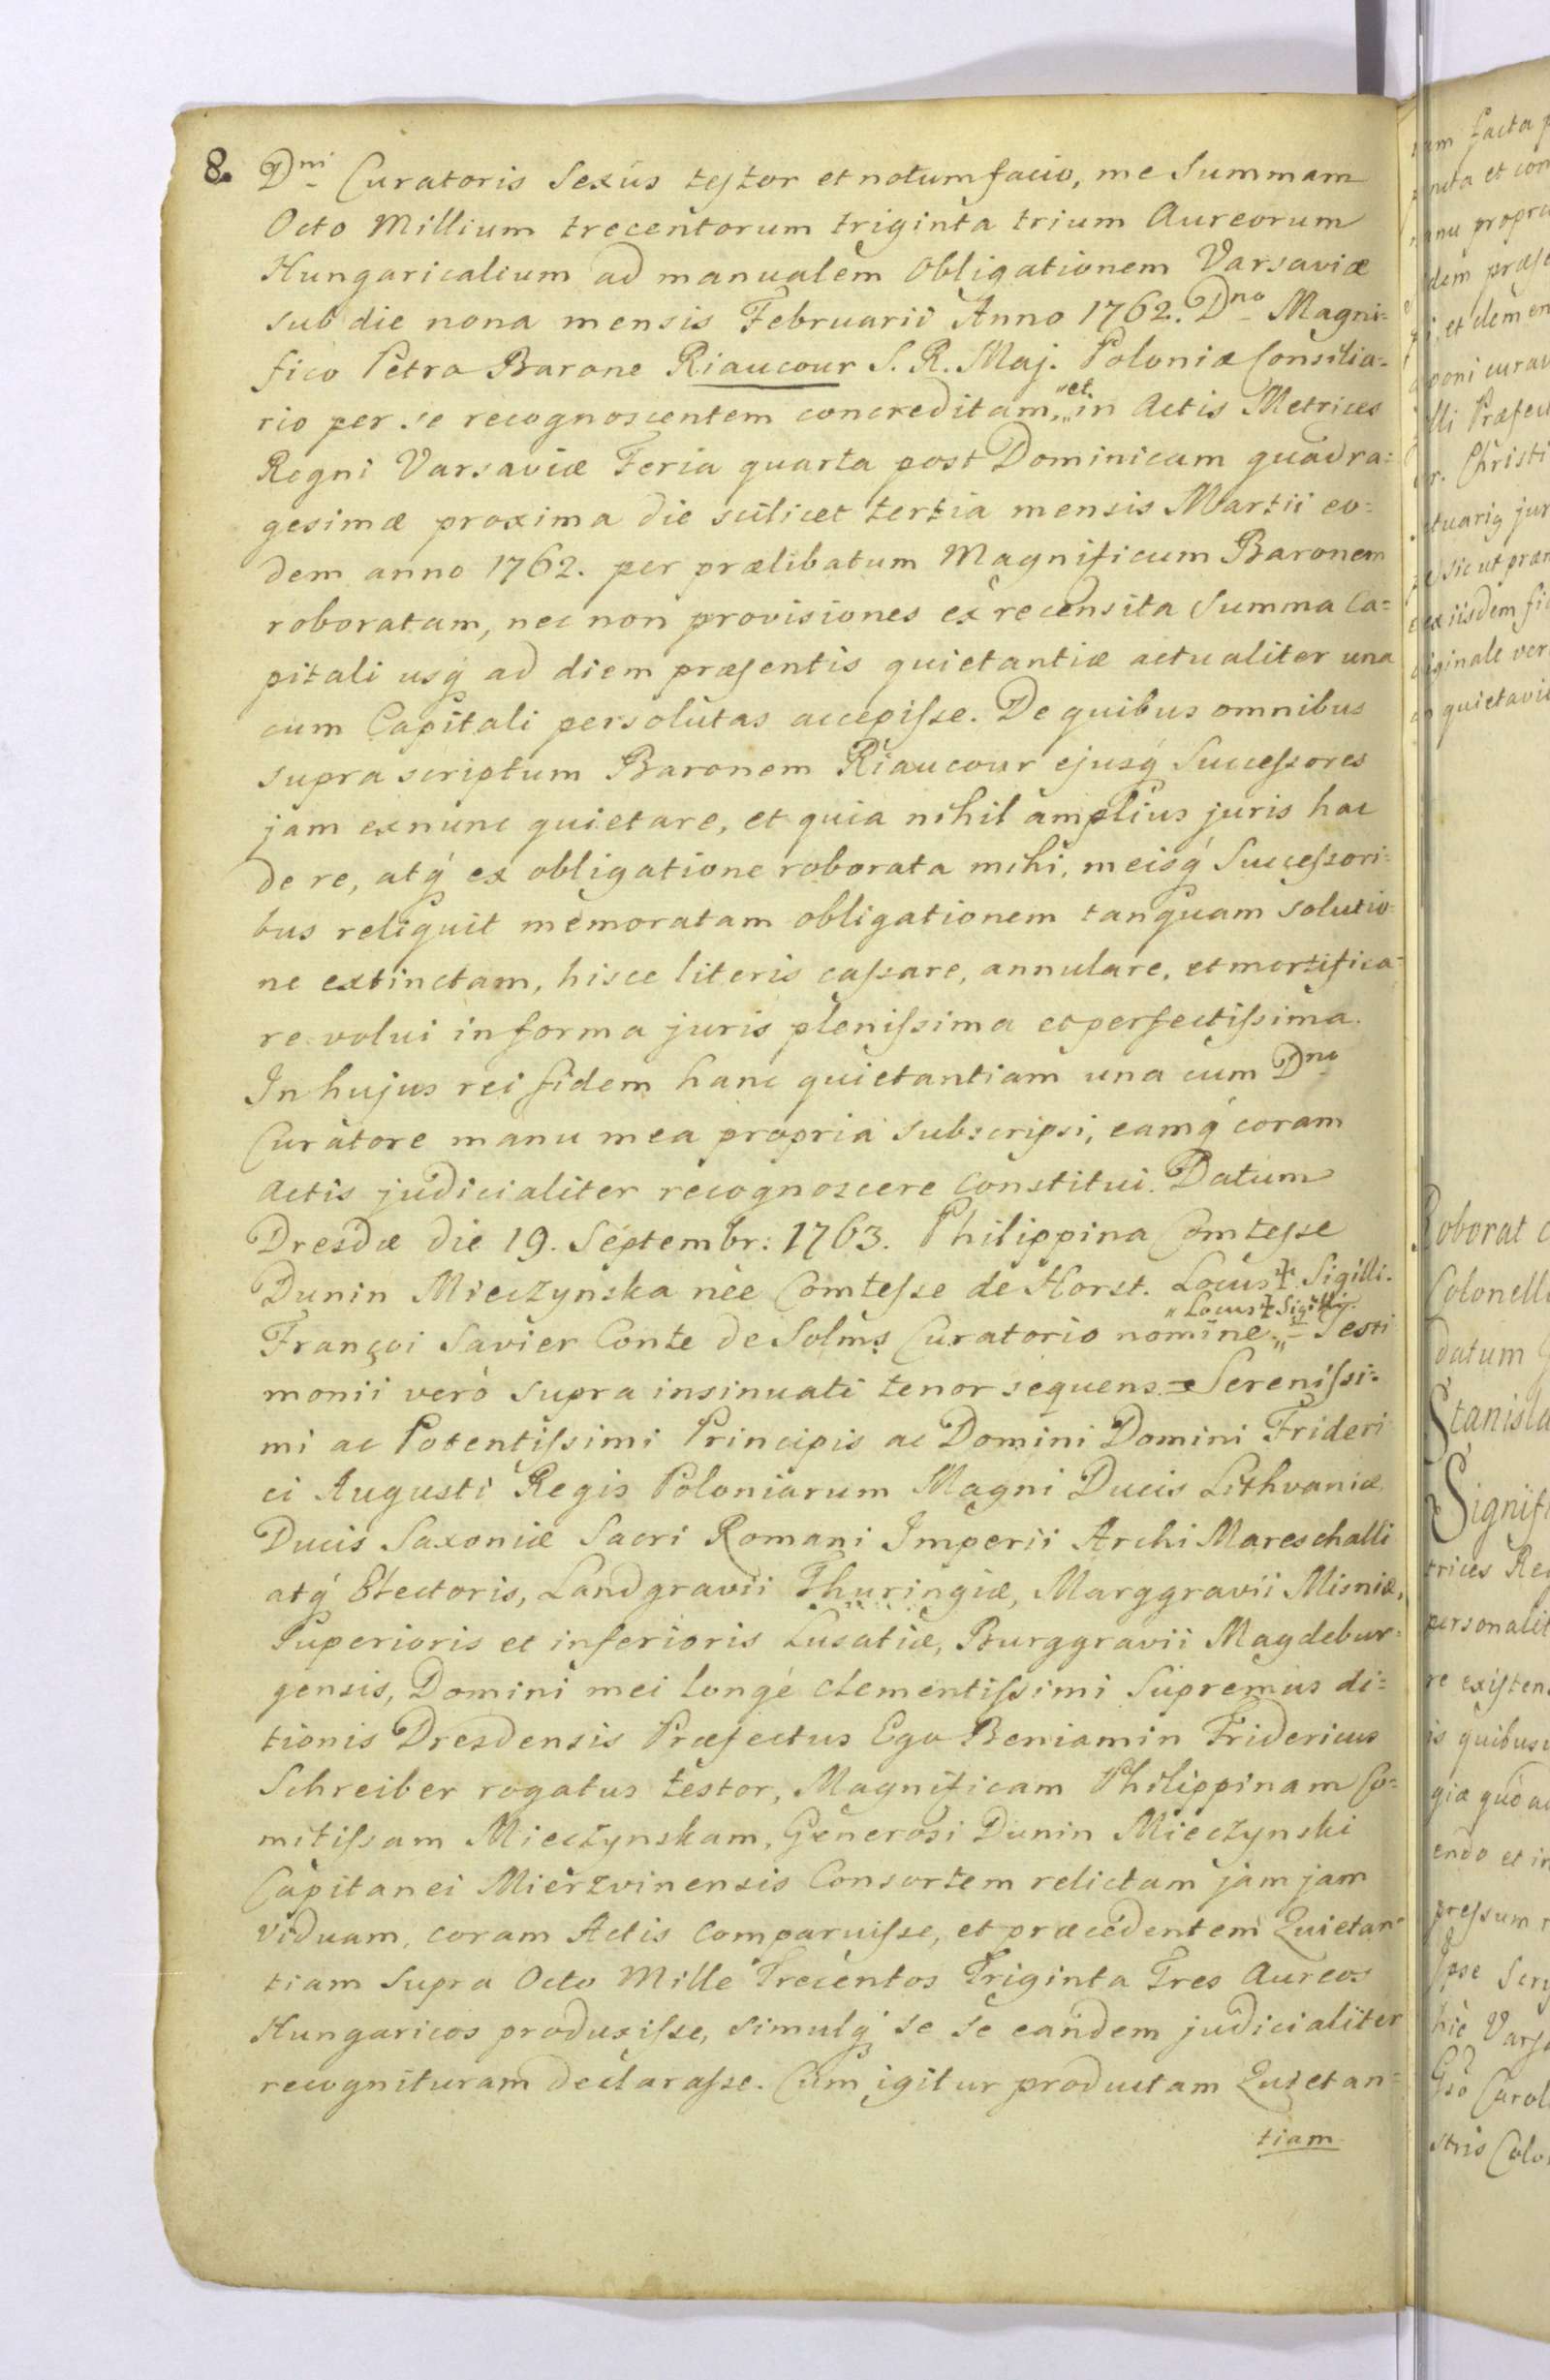 8. Dni Curatoris Sexûs testor et notum facio, me Summam
Octo Millium trecentorum triginta trium Aureorum
Hungaricalium ad manualem Obligationem Varsaviæ
sub die nona mensis Februarii Anno 1762. Dno Magni=
fico Petro Barone Riaucour S. R. Maj. Poloniæ Consilia=
rio per se recognoscentem concreditam, „et„ in Actis Metrices
Regni Varsaviæ Feria quarta post Dominicam quadra=
gesimæ proxima die scilicet tertia mensis Martii eo=
dem anno 1762. per prælibatum Magnificum Baronem
roboratam, nec non provisiones ex recensita Summa Ca=
pitali usq́ ad diem præsentis quietantiæ actualiter una
cum Capitali persolutas accepisse. De quibus omnibus
supra scriptum Baronem Riaucour ejusq́ Successores
jam ex nunc quietare, et quia nihil amplius juris hac
de re, atq́ ex obligatione roborata mihi, meisq́ Successori=
bus reliquit memoratam obligationem tanquam solutio=
ne extinctam, hisce literis cassare, annulare, et mortifica=
re volui in forma juris plenissima et perfectissima.
In hujus rei fidem hanc quietantiam una cum Dno
Curatore manu mea propria subscripsi, eamq́ coram
Actis judicialiter recognoscere constitui. Datum
Dresdæ die 19. Septembr: 1763. Philippina Comtesse
Dunin Mieczynska née Comtesse de Horst. Locus ‡ Sigilli.
„Locus ‡ Sigilli.
Françoi Savier Conte de Solms Curatorio nomine„ = Testi
monii verò supra insinuati tenor sequens = Serenissi=
mi ac Potentissimi Principis ac Domini Domini Frideri
ci Augusti Regis Poloniarum Magni Ducis Lithvaniæ
Ducis Saxoniæ Sacri Romani Imperii Archi Mareschalli
atq́ Electoris, Landgravii Thuringiæ, Marggravii Misniæ,
Superioris et inferioris Lusatiæ, Burggravii Magdebur=
gensis, Domini mei longé clementissimi Supremus di=
tionis Dresdensis Præfectus Ego Beniamin Fridericus
Schreiber rogatus testor, Magnificam Philippinam Co=
mitissam Mieczynskam, Generosi Dunin Mieczynski
Capitanei Mierzvinensis Consortem relictam jam jam
viduam, coram Actis comparuisse, et præcedentem Quietan=
tiam supra Octo Mille Trecentos Triginta Tres Aureos
Hungaricos produxisse, simulq́ se se eandem judicialiter
recognituram declarasse. Cùm igitur productam Quietan=
tiam